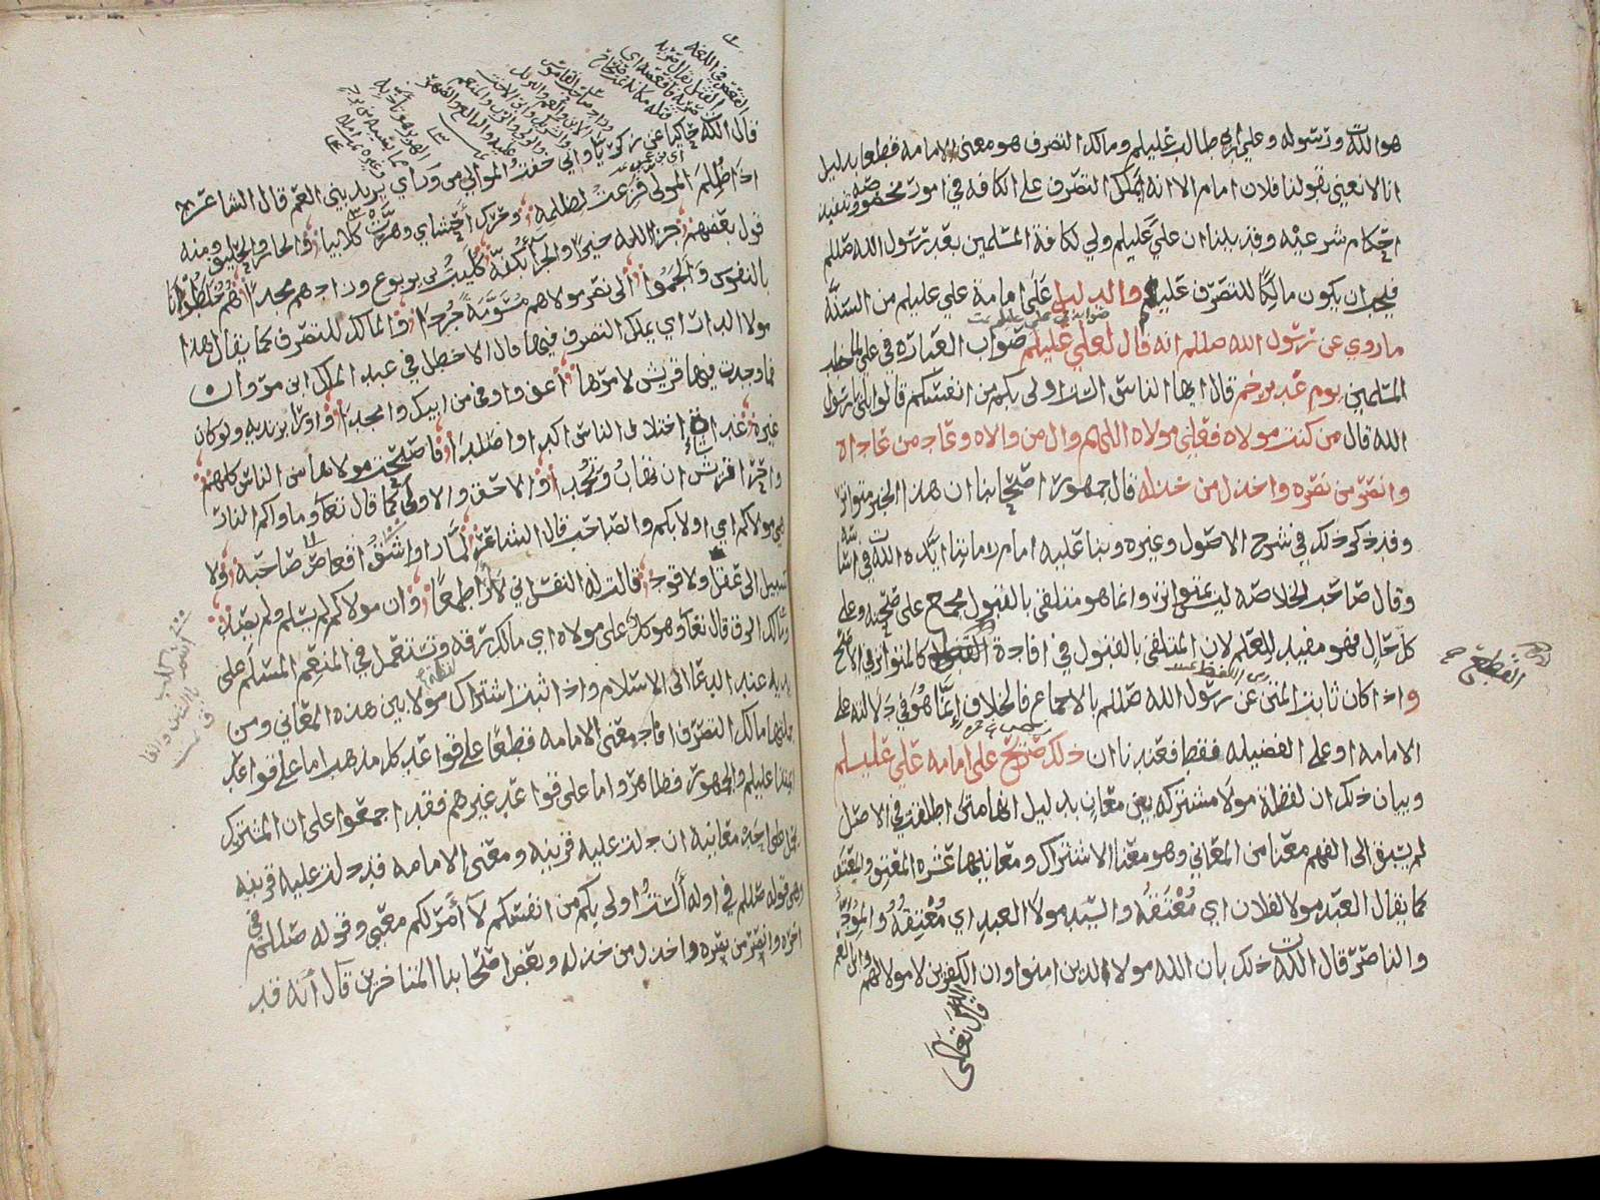 هو الله ورسوله وعلي بن ابي طالب عليلم ومالك التصرف هو معنى الامامه قطعا بدليل
انا لا نعني بقولنا فلان امام الا انه يملك التصرف على الكافه في امور مخصوصه وتنفيذ
احكام شرعيه وقد بينا ان علي عليلم ولي لكافة المسلمين بعد رسول الله صللم
فيجب ان يكون مالكا للتصرف عليهم والدليل على امامة علي عليلم من السنة
ماروي عن رسول الله صللم انه قال لعلي عليلم صواب العبارة في علي
المسلمين يوم غدير خم قال ايها الناس الست اولى بكم من انفسكم قالوا بلى يا رسول
الله قال من كنت مولاه فعلي مولاه اللهم وال من والاه وعاد من عاداه
وانصر من نصره واخذل من خذله قال جمهور اصحابنا ان هذا الخبر متواتر
وقد ذكر ذلك في شرح الاصول وغيره وبنا عليه امام زماننا ايده الله ت في اساسه
وقال صاحب الخلاصه ليس بمتواتر وانما هو متلقى بالقبول مجمع على صحته وعلى
كل حال فهو مفيد للعلم لان المتلقى بالقبول في افادة كالمتواتر في الاصح
القطع
واذا كان ثابت المتن عن رسول الله صللم بالاجماع فالخلاف انما هو في دلالته على
الامامه او على الفضيله فقط فعندنا ان ذلك صريح على امامه علي عليلم
وبيان ذلك ان لفظة مولا مشتركه بين معان بدليل انها متى اطلقت في الاصل
لم يسبق الى الفهم معنا من المعاني وهو معنا الاشتراك ومعانيها عشره المعتق والمعتق
كما يقال العبد مولا لفلان اي معتقه والسيد مولا العبد اي معتقه والمود
والناصر قال الله ت ذلك بان الله مولا الذين امنوا وان الكفرين لا مولا لهم وابن العم
قال تعالى
قال الله ت حاكيا عن زكريا واني خفت الموالي من وراي يريد بني العم قال الشاعر
اذا ظلم المولى فزعت لظلمه وحرك احشاي وهرت كلابيا والجار والحليف ومنه
قول بعضهم جزا الله خيرا والجزا بكفه كليب بن يربوع وزادهم مجدا هم خلطونا
بالنفوس والجموا الى نصر مولاهم مسومة جردا والمالك للتصرف كما يقال هذا
مولا الدار اي يملك التصرف فيها قال الاخطل في عبد الملك ابن مروان
فما وجدت فيها قريش لامرها اعف واوفى من ابيك وامجدا واورا بزنديه ولو كان
غيره غداة اختلاف الناس اكدا واصلدا فاصبحت مولاها من الناس كلهم
واحرا قريش ان تهاب وتحمدا والاحق والاولى كما قال تعا وماواكم النار
هي مولاكم اي اولا بكم والصاحب قال الشاعر لما راوا شق اقعاص صاحبه ولا
سبيل الى عقل ولا قود قالت له النفس اني لا ارا طمعا وان مولاكم لم يسلم ولم يصد
ومالك الرق قال تعا وهو كل على مولاه اي مالك رقه وتستعمل في المنعم المسلم على
يديه عند الدعا الى الاسلام واذا ثبت اشتراك لفظة مولا بين هذه المعاني ومن
جملتها مالك التصرف افاد معنى الامامه قطعا على قواعد كل مذهب اما على قواعد
ايمتنا عليلم والجمهور فظاهر واما على قواعد غيرهم فقد اجمعوا على ان المشترك
يحمل على احد معانيه ان دلت عليه قرينه ومعنى الامامه قد دلت عليه قرينه
وهي قوله صللم في اوله الست اولى بكم من انفسكم لا امر لكم معي وقوله صللم في
اخره وانصر من نصره واخذل من خذله وبعض اصحابنا المتاخرين قال انه قد